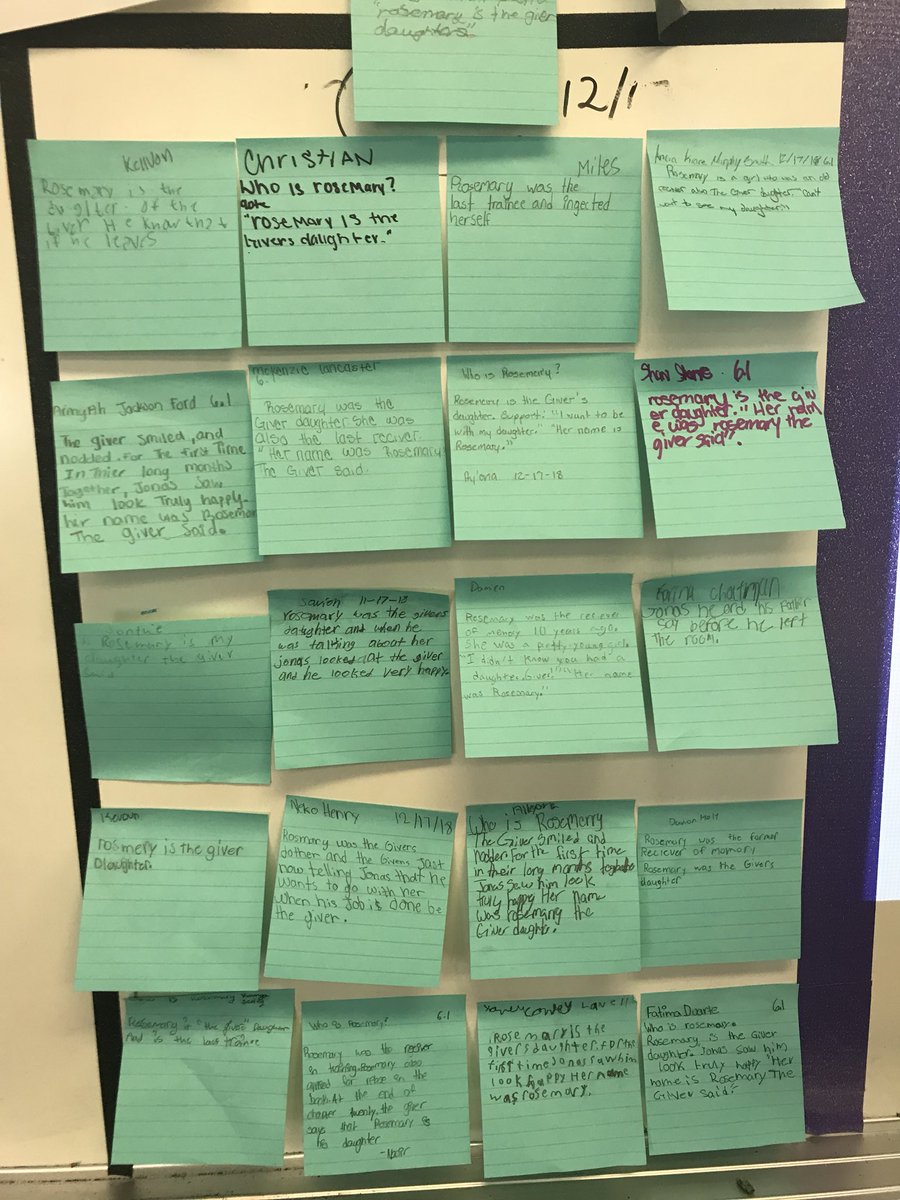 "rosemary is the giver
daughters."
12/1
Kellvon
Rosemary is the
of the
giver. He
if he leaves
CHRISTIAN
Who is rosemary?
"rosemary is the
Givers daughter."
Miles
Rosemary was the
last trainee and ingected
herself
12/17/18 6.1
Rosemary is a girl who was an old
reciever also The Giver dughter.
want to see my daughter"
Jackson Ford 6.1
The giver smiled, and
nodded. For The First Time
In Thier long months
Together, Jonas saw
him look Truly happy.
her name was Rosemary
The giver said.
Mckenzie Lancaster
6.
Rosemary was the
Giver daughter she was
also the last reciver.
"Her name was Rosemary
The Giver said.
Who is Rosemary?
Rosemary is the Giver's
daughter. Support: "I want to be
with my daughter." "Her name is
Rosemary."
Ry'ona 12-17-18
6.1
rosemary is the giv
er daughter. "Her nam
e was rosemary the
giver said".
Rosemary is my
daughter the giver
said
Savion 11-17-18
rosemary was the givers
daughter and when he
was talking about her
jonas looked at the giver
and he looked very happy.
Damien
Rosemary was the reciever
of memory 10 years ago.
She was a pretty young girl.
"I didn't know you had a
daughter, Giver." "Her name
was Rosemary."
Jonas heard his Father
say before he left
the room.
rosmery is the giver
Daughter.
Neko Henry 12/17/18
Rosmary was the Givers
dother and the Givers Jast
now telling Jonas that he
wants to go with her
when his Job is done be
the giver.
Who is Rosemerry
The Giver Smiled and
nodden For the first time
in their long months
Jonas Saw him look
truly happy Her Name
was rosemarry the
Giver daughter.
Holt
Rosemary was the former
Reciever of momory
Rosemary was the Givers
daughter
Rosemary is "the giver"
And is "the last trainee
Who is Rosemary? 6.1
Rosemary was the reciever
in training. Rosemary also
for relese in the
book. At the end of
chapter twenty, the giver
says that "Rosemary is
his daughter
-Nasir
Rosemary is the
givers daughter. For the
first time Jonas saw him
look happy Her name
was rosemary.
Fatima Duarte 6.1
Who is rosemary.
Rosemary is the Giver
daughter. Jonas saw him
look truly happy "Her
name is Rosemary The
Giver Said."